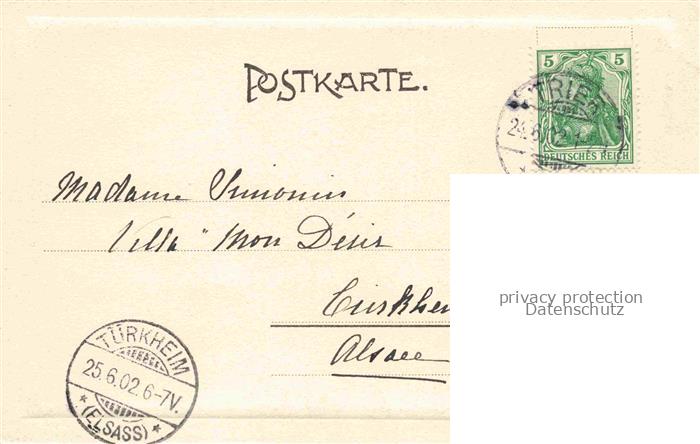 POSTKARTE.
5 5
DEUTSCHES REICH
TRIE
24.6.02
Madame Simonin
Villa "Mon Désir
Turkhe
Alsace
TÜRKHEIM
25.6.02.6-7V.
* (ELSASS) *
privacy protection
Datenschutz